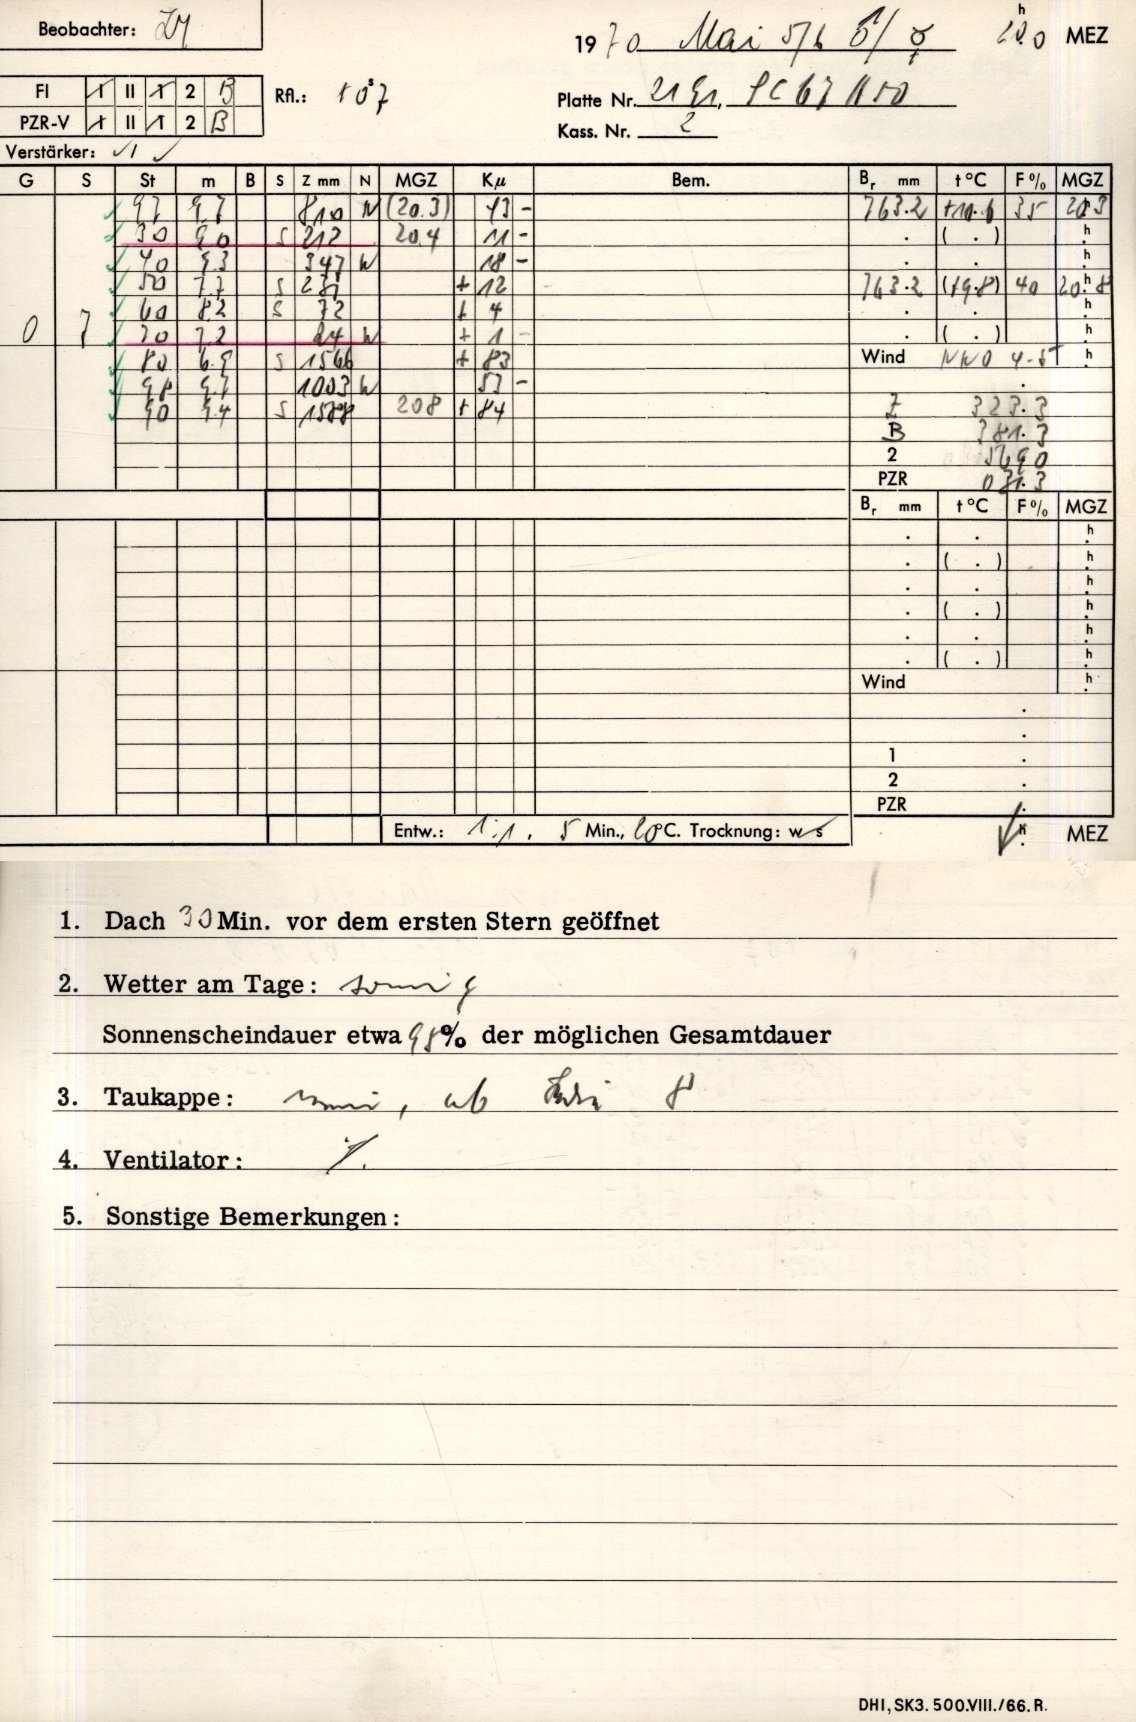 Beobachter:
1970 Mai 5/6 MEZ
FI 1 II 1 2 B
PZR-V 1 II 1 2 B
Rfl.: + 0ˢ7
Platte Nr.
Kass. Nr. 2
Verstärker: I
G S St m B S Z mm N MGZ Kμ Bem. Bᵣ mm t °C F % MGZ
97 9.7 810 N (20.3) 43 - 763.2 +10.6 35 20.3
30 9.0 S 212 20.4 11 - . ( . ) h
40 9.3 347 W 18 - . . h
50 7.7 S + 12 763.2 (+9.8) 40 20.8
60 8.2 S 72 + 4 . . h
0 7 70 7.2 24 W + 1 - . ( . ) h
80 6.9 S 1566 + 83 Wind NNO 4-5 h
98 9.7 1003 W 53 -
90 9.4 S 1588 208 + 84 Z 323.3
B 381.3
2
PZR
Bᵣ mm t °C F % MGZ
. . h
. ( . ) h
. . h
. ( . ) h
. . h
. ( . ) h
Wind h
1 .
2 .
PZR .
Entw.: 1:1, 5 Min., 20°C. Trocknung: w s h MEZ
1. Dach 30 Min. vor dem ersten Stern geöffnet
2. Wetter am Tage: sonnig
Sonnenscheindauer etwa 98% der möglichen Gesamtdauer
3. Taukappe: , ab 8
4. Ventilator: ./.
5. Sonstige Bemerkungen:
DHI, SK3. 500.VIII./66. R.